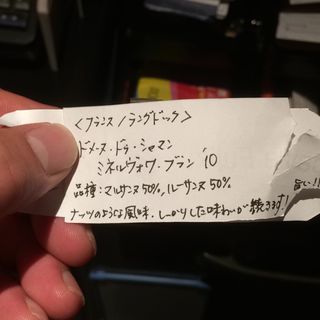 ＜フランス/ラングドック＞
ドメーヌ・ドゥ・シャマン
ミネルヴォワ・ブラン '10
品種：マルサンヌ50%、ルーサンヌ50%
ナッツのような風味、しっかりした味わいが続きます！
旨い!!